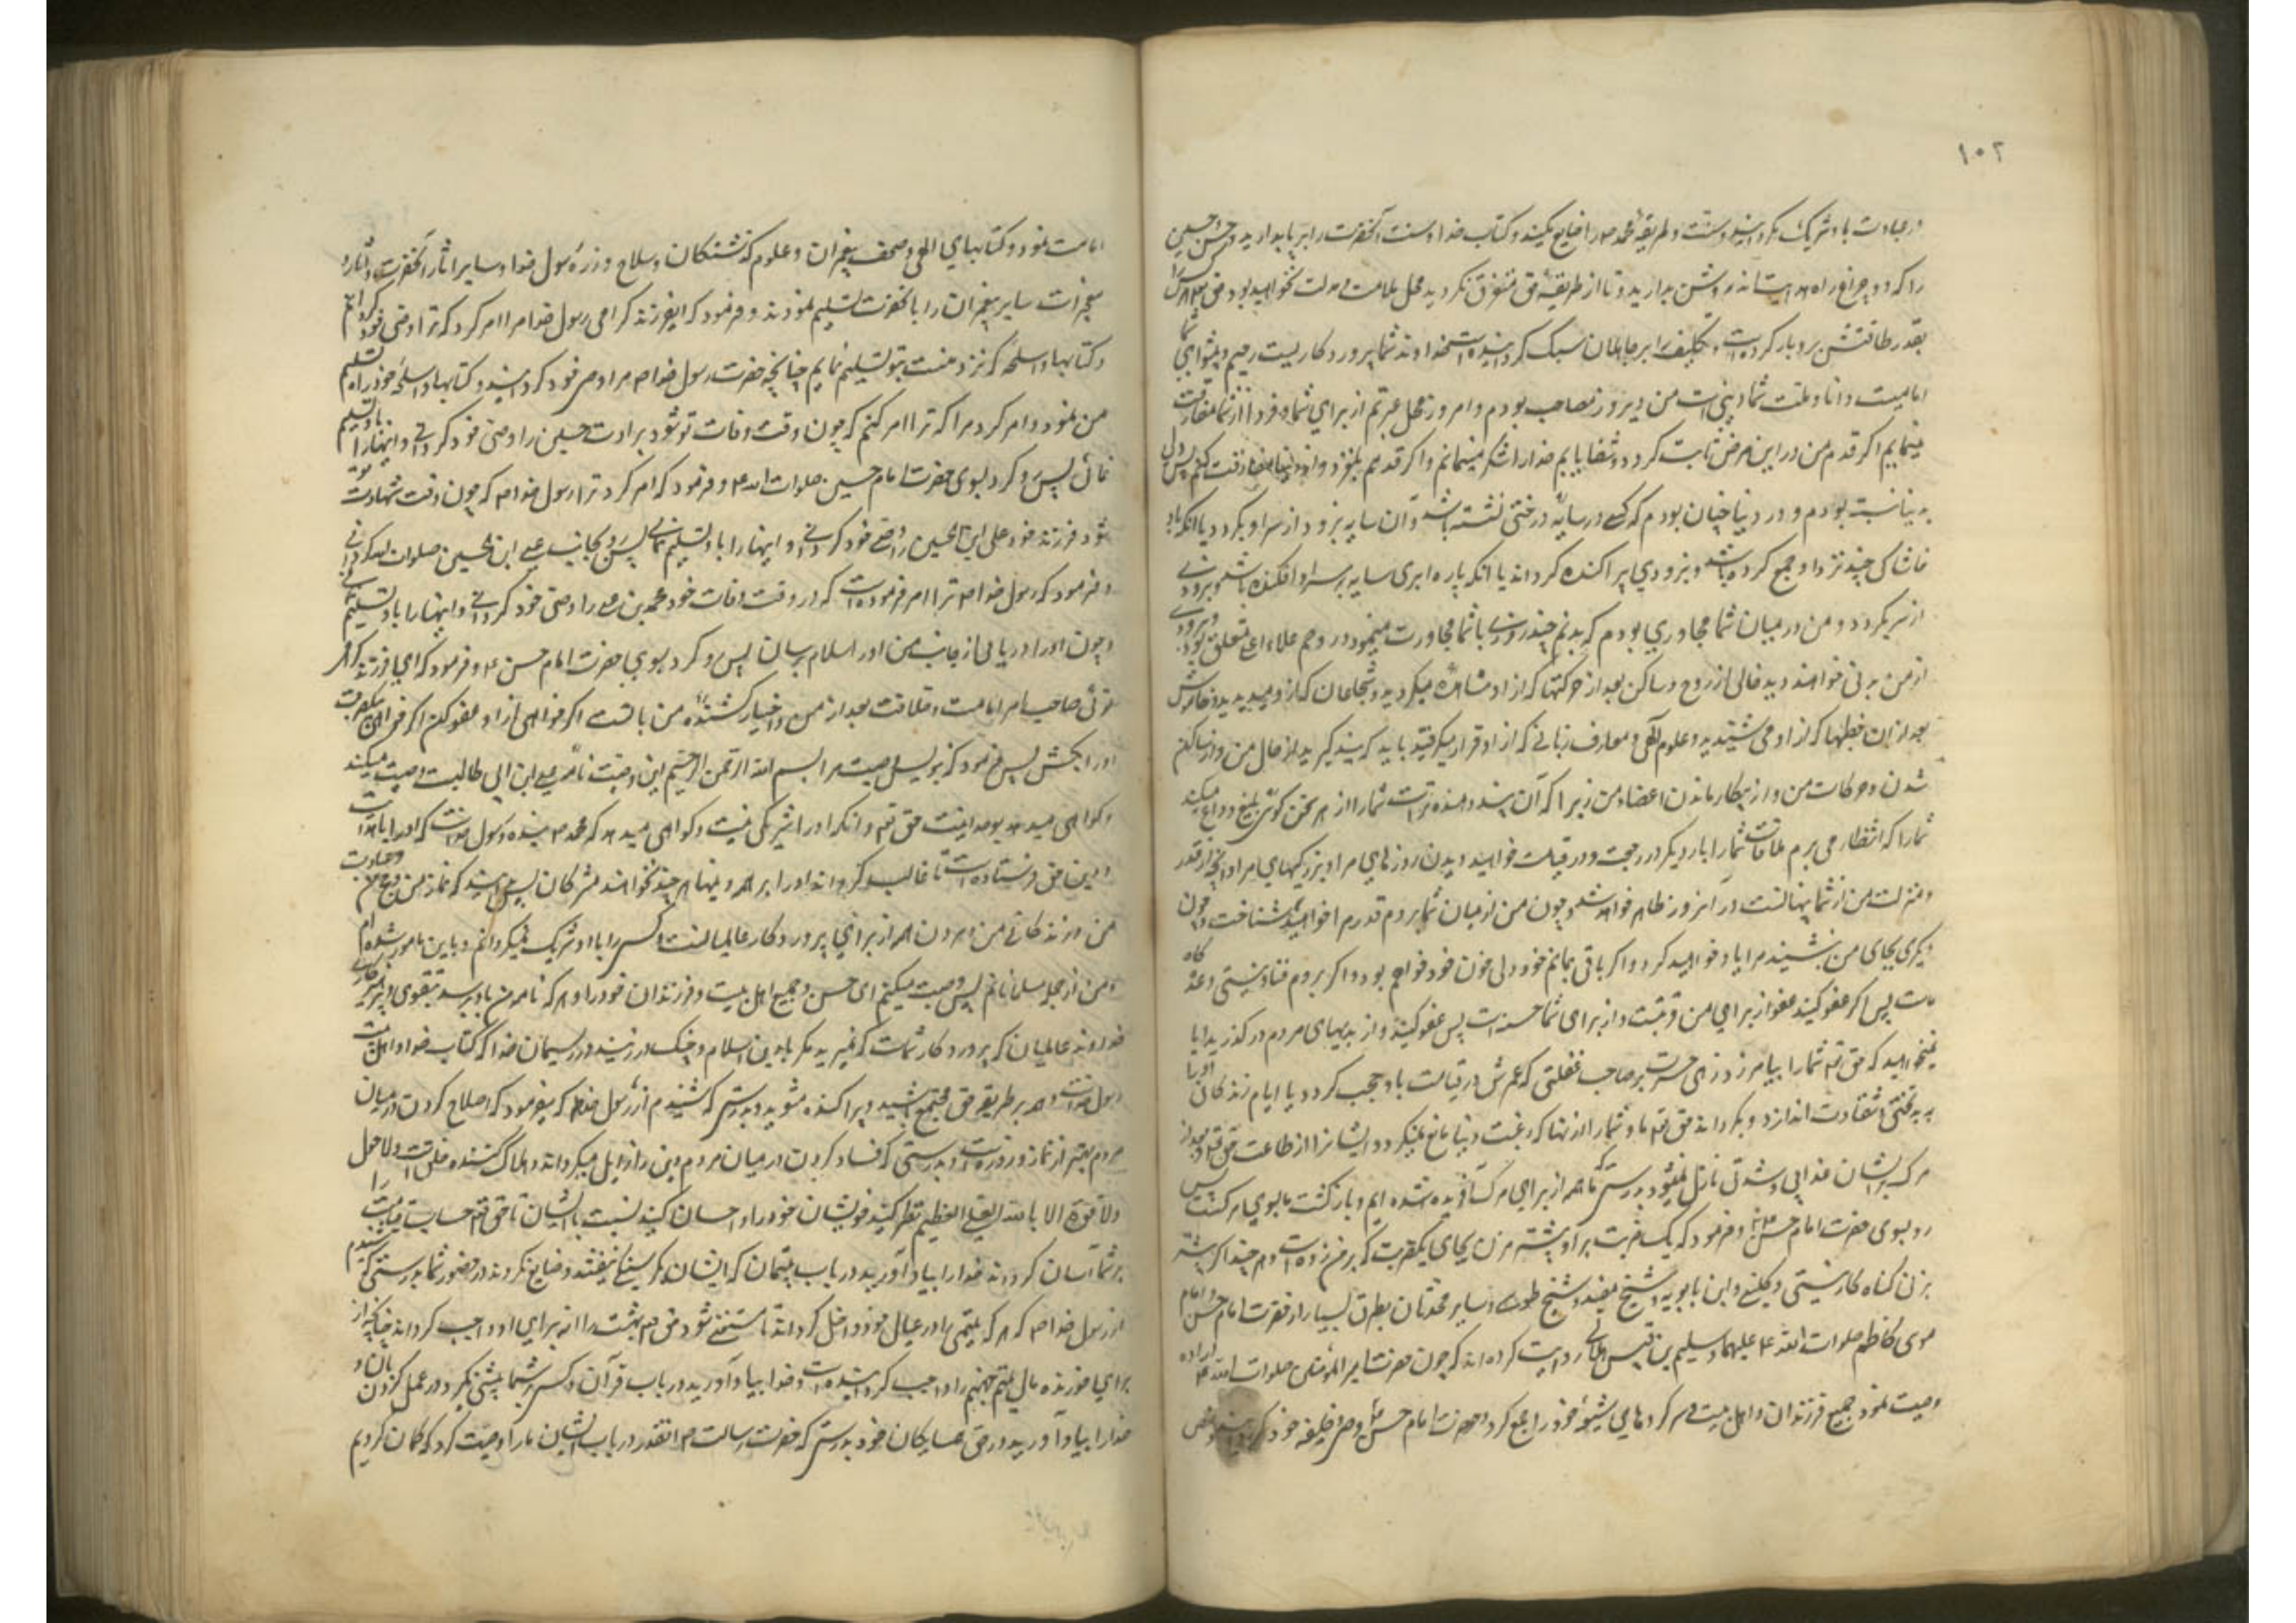 ۱۰۲
در عبادت با او شریک مگردانید و سنت و طریقهٔ محمد ص را ضایع مکنید و کتاب خدا و سنت آنحضرت را بر پا بدارید و حسن و حسین
را که دو چراغ راه هدایت‌اند روشن بدارید و تا از طریقهٔ حق متفرق نگردید محل ملامت و مذلت نخواهید بود حق تعالی هر کس را
بقدر طاقتش بر او بار کرده است و تکلیف را بر جاهلان سبک گردانیده است خداوند شما پروردگاریست رحیم و پیشوای شما
امامیست دانا و ملت شما دینی است من دیروز مصاحب بودم و امروز محل عبرتم از برای شما و فردا از شما مفارقت
مینمایم اگر قدم من در این مرض ثابت گردد و شفا یابم خدا را شکر مینمایم و اگر قدمم بلغزد و از دنیا مفارقت کنم پس دل
به دنیا نبسته بودم و در دنیا چنان بودم که کسی در سایه درختی نشسته باشد و آن سایه بزودی از سر او بگردد یا آنکه باد
خاشاکی چند نزد او جمع کرده باشد و بزودی پراکنده گرداند یا آنکه پاره ابری سایه بر سر او افکنده باشد و بزودی
از سر بگردد و من در میان شما مجاوری بودم که بدنم چند روزی با شما مجاورت مینمود و روحم بملاء اعلی متعلق بود و بزودی
از من بدنی خواهند دید خالی از روح و ساکن بعد از حرکتها که از او مشاهده میکردید و شجاعان که از او میدیدید و خاموش
بعد از آن خطبها که از او می شنیدید و علوم الهی و معارف ربانی که از او فرا میگرفتید باید که پند گیرید از حال من و از ساکن
شدن حرکات من و از بیکار ماندن اعضاء من زیرا که آن پند دهنده تر است شما را از هر سخن گوی بلیغ و وداع میکند
شما را که انتظار می برم ملاقات شما را بار دیگر در رجعت و در قیامت خواهید دیدن روزهای مرا و بزرگیهای مرا و آنچه از قدر
و منزلت من از شما پنهانست در آنروز ظاهر خواهد شد و چون من از میان شما بروم قدر مرا خواهید شناخت و چون
دیگری بجای من بنشیند مرا یاد خواهید کرد و اگر باقی بمانم خود ولی خون خود خواهم بود و اگر بروم فنا و نیستی وعده‌گاه
ماست پس اگر عفو کنید عفو از برای من قربت و از برای شما حسنه است پس عفو کنید و از بدیهای مردم در گذرید آیا
نمیخواهید که حق تعالی شما را بیامرزد زهی حسرت بر صاحب غفلتی که عمرش در قیامت بر او حجت گردد یا ایام زندگانی او را
به بدبختی و شقاوت اندازد و بگرداند حق تعالی ما و شما را از آنها که رغبت دنیا مانع نمیگردد ایشان را از طاعت حق تعالی و بعد از
مرگ بر ایشان عذابی و شدتی نازل نمیشود بدرستی که ما همه از برای مرگ آفریده شده ایم و بازگشت ما بسوی مرگست پس
رو بسوی حضرت امام حسن ع و فرمود که یک ضربت بر او بیشتر مزن بجای یکضربت که بر من زده است و هر چند اگر بیشتر
بزنی گناه کار نیستی و کلینی و ابن بابویه و شیخ مفید و شیخ طوسی و سایر محدثان بطرق بسیار از حضرت امام حسن و امام
موسی کاظم صلوات الله علیهما و سلیم بن قیس هلالی روایت کرده‌اند که چون حضرت امیر المؤمنین صلوات الله علیه اراده
وصیت نمود جمیع فرزندان و اهل بیت و سرکرده‌های شیعهٔ خود را جمع کرد و حضرت امام حسن را وصی و خلیفه خود گردانید و نص
امامت نمود و کتابهای الهی و صحف پیغمبران و علوم گذشتگان و سلاح و زره رسول خدا و سایر آثار آنحضرت و آثار و
معجزات سایر پیغمبران را با آنحضرت تسلیم نمودند و فرمود که ای فرزند گرامی رسول خدا مرا امر کرد که ترا وصی خود گردانم
و کتابها و اسلحه که نزد منست بتو تسلیم نمایم چنانچه حضرت رسول خدا ص مرا وصی خود گردانید و کتابها و اسلحه خود را تسلیم
من نمود و امر کرد مرا که ترا امر کنم که چون وقت وفات تو شود برادرت حسین را وصی خود گردانی و اینها را باو تسلیم
نمائی پس رو کرد بسوی حضرت امام حسین صلوات الله علیه و فرمود که امر کرد ترا رسول خدا ص که چون وقت شهادت تو
شود فرزند خود علی ابن الحسین را وصی خود گردانی و اینها را باو تسلیم نمائی پس رو بجانب علی ابن الحسین صلوات الله گردانید
و فرمود که رسول خدا ص ترا امر فرموده است که در وقت وفات خود محمد بن علی را وصی خود گردانی و اینها را باو تسلیم نمائی
و چون او را دریابی از جانب من او را سلام برسان پس رو کرد بسوی حضرت امام حسن ع و فرمود که ای فرزند گرامی
توئی صاحب امر امامت و خلافت بعد از من و اختیار کشنده من با تست اگر خواهی از او عفو کن و اگر خواهی بیکضربت
او را بکش پس فرمود که بنویس وصیت مرا بسم الله الرحمن الرحیم این وصیت نامه علی ابن ابی طالبست وصیت میکند
و گواهی میدهد بوحدانیت حق تعالی و آنکه او را شریکی نیست و گواهی میدهد که محمد ص بنده و رسول خداست که او را با هدایت
و دین حق فرستاده است تا غالب گرداند او را بر همه دینها هر چند نخواهند مشرکان پس بدانید که نماز من و حج من و عبادت
من و زندگانی من و مردن همه از برای پروردگار عالمیانست کسی را با او شریک نمیگردانم و باین مامور شده ام
و من از جمله مسلمانانم پس وصیت میکنم ای حسن و جمیع اهل بیت و فرزندان خود را و هر که نامه من باو برسد بتقوی و پرهیزکاری
خداوند عالمیان که پروردگار شماست که نمیرید مگر با دین اسلام و چنگ در زنید در ریسمان خدا که کتاب خدا و اهل بیت
رسول خداست و همه بر طریق حق مجتمع باشید و پراکنده مشوید بدرستی که شنیدم از رسول خدا ص که میفرمود که اصلاح کردن در میان
مردم بهتر از نماز و روزه است و بدرستی که فساد کردن در میان مردم دین را زایل میگرداند و هلاک کننده خلق است ولا حول
ولا قوة الا بالله العلی العظیم نظر کنید خویشان خود را و احسان کنید نسبت بایشان تا حق تعالی حساب قیامت را
بر شما آسان گرداند خدا را بیاد آورید در باب یتیمان که ایشان بگرسنگی نیفتند و ضایع نگردند در حضور شما بدرستی که شنیدم
از رسول خدا ص که هر که یتیمی را در عیال خود داخل گرداند تا مستغنی شود حق تعالی بهشت را از برای او واجب گرداند چنانکه از
برای خورنده مال یتیم جهنم را واجب گردانیده است و خدا را بیاد آورید در باب قرآن و کسی بر شما پیشی نگیرد در عمل کردن بآن و
خدا را بیاد آورید در حق همسایگان خود بدرستی که حضرت رسالت ص آنقدر در باب ایشان ما را وصیت کرد که گمان کردیم